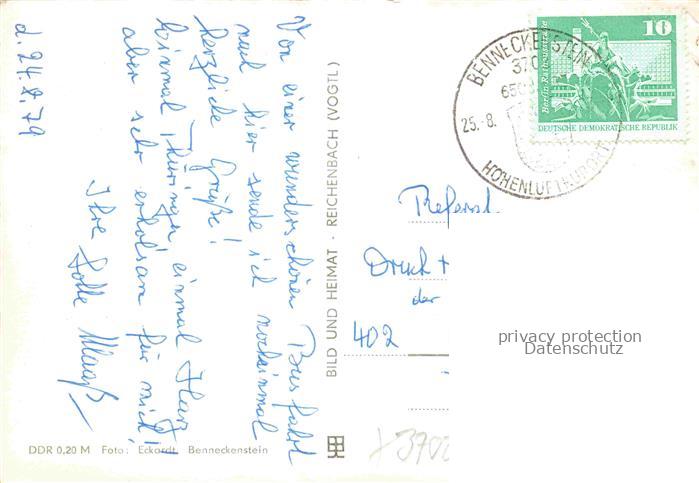 Von einer wunderschönen Busfahrt
nach hier sende ich nocheinmal
herzliche Grüße!
Einmal Thüringen einmal Harz
aber sehr erholsam für mich!
Ihre
d. 24.8.79
BILD UND HEIMAT · REICHENBACH (VOGTL)
DDR 0,20 M Foto: Eckardt, Benneckenstein
BENNECKENSTEIN
25.-8.
HÖHENLUFTKURORT
10
Berlin Rathausstraße
DEUTSCHE DEMOKRATISCHE REPUBLIK
Referat
Druck +
der
402
privacy protection
Datenschutz